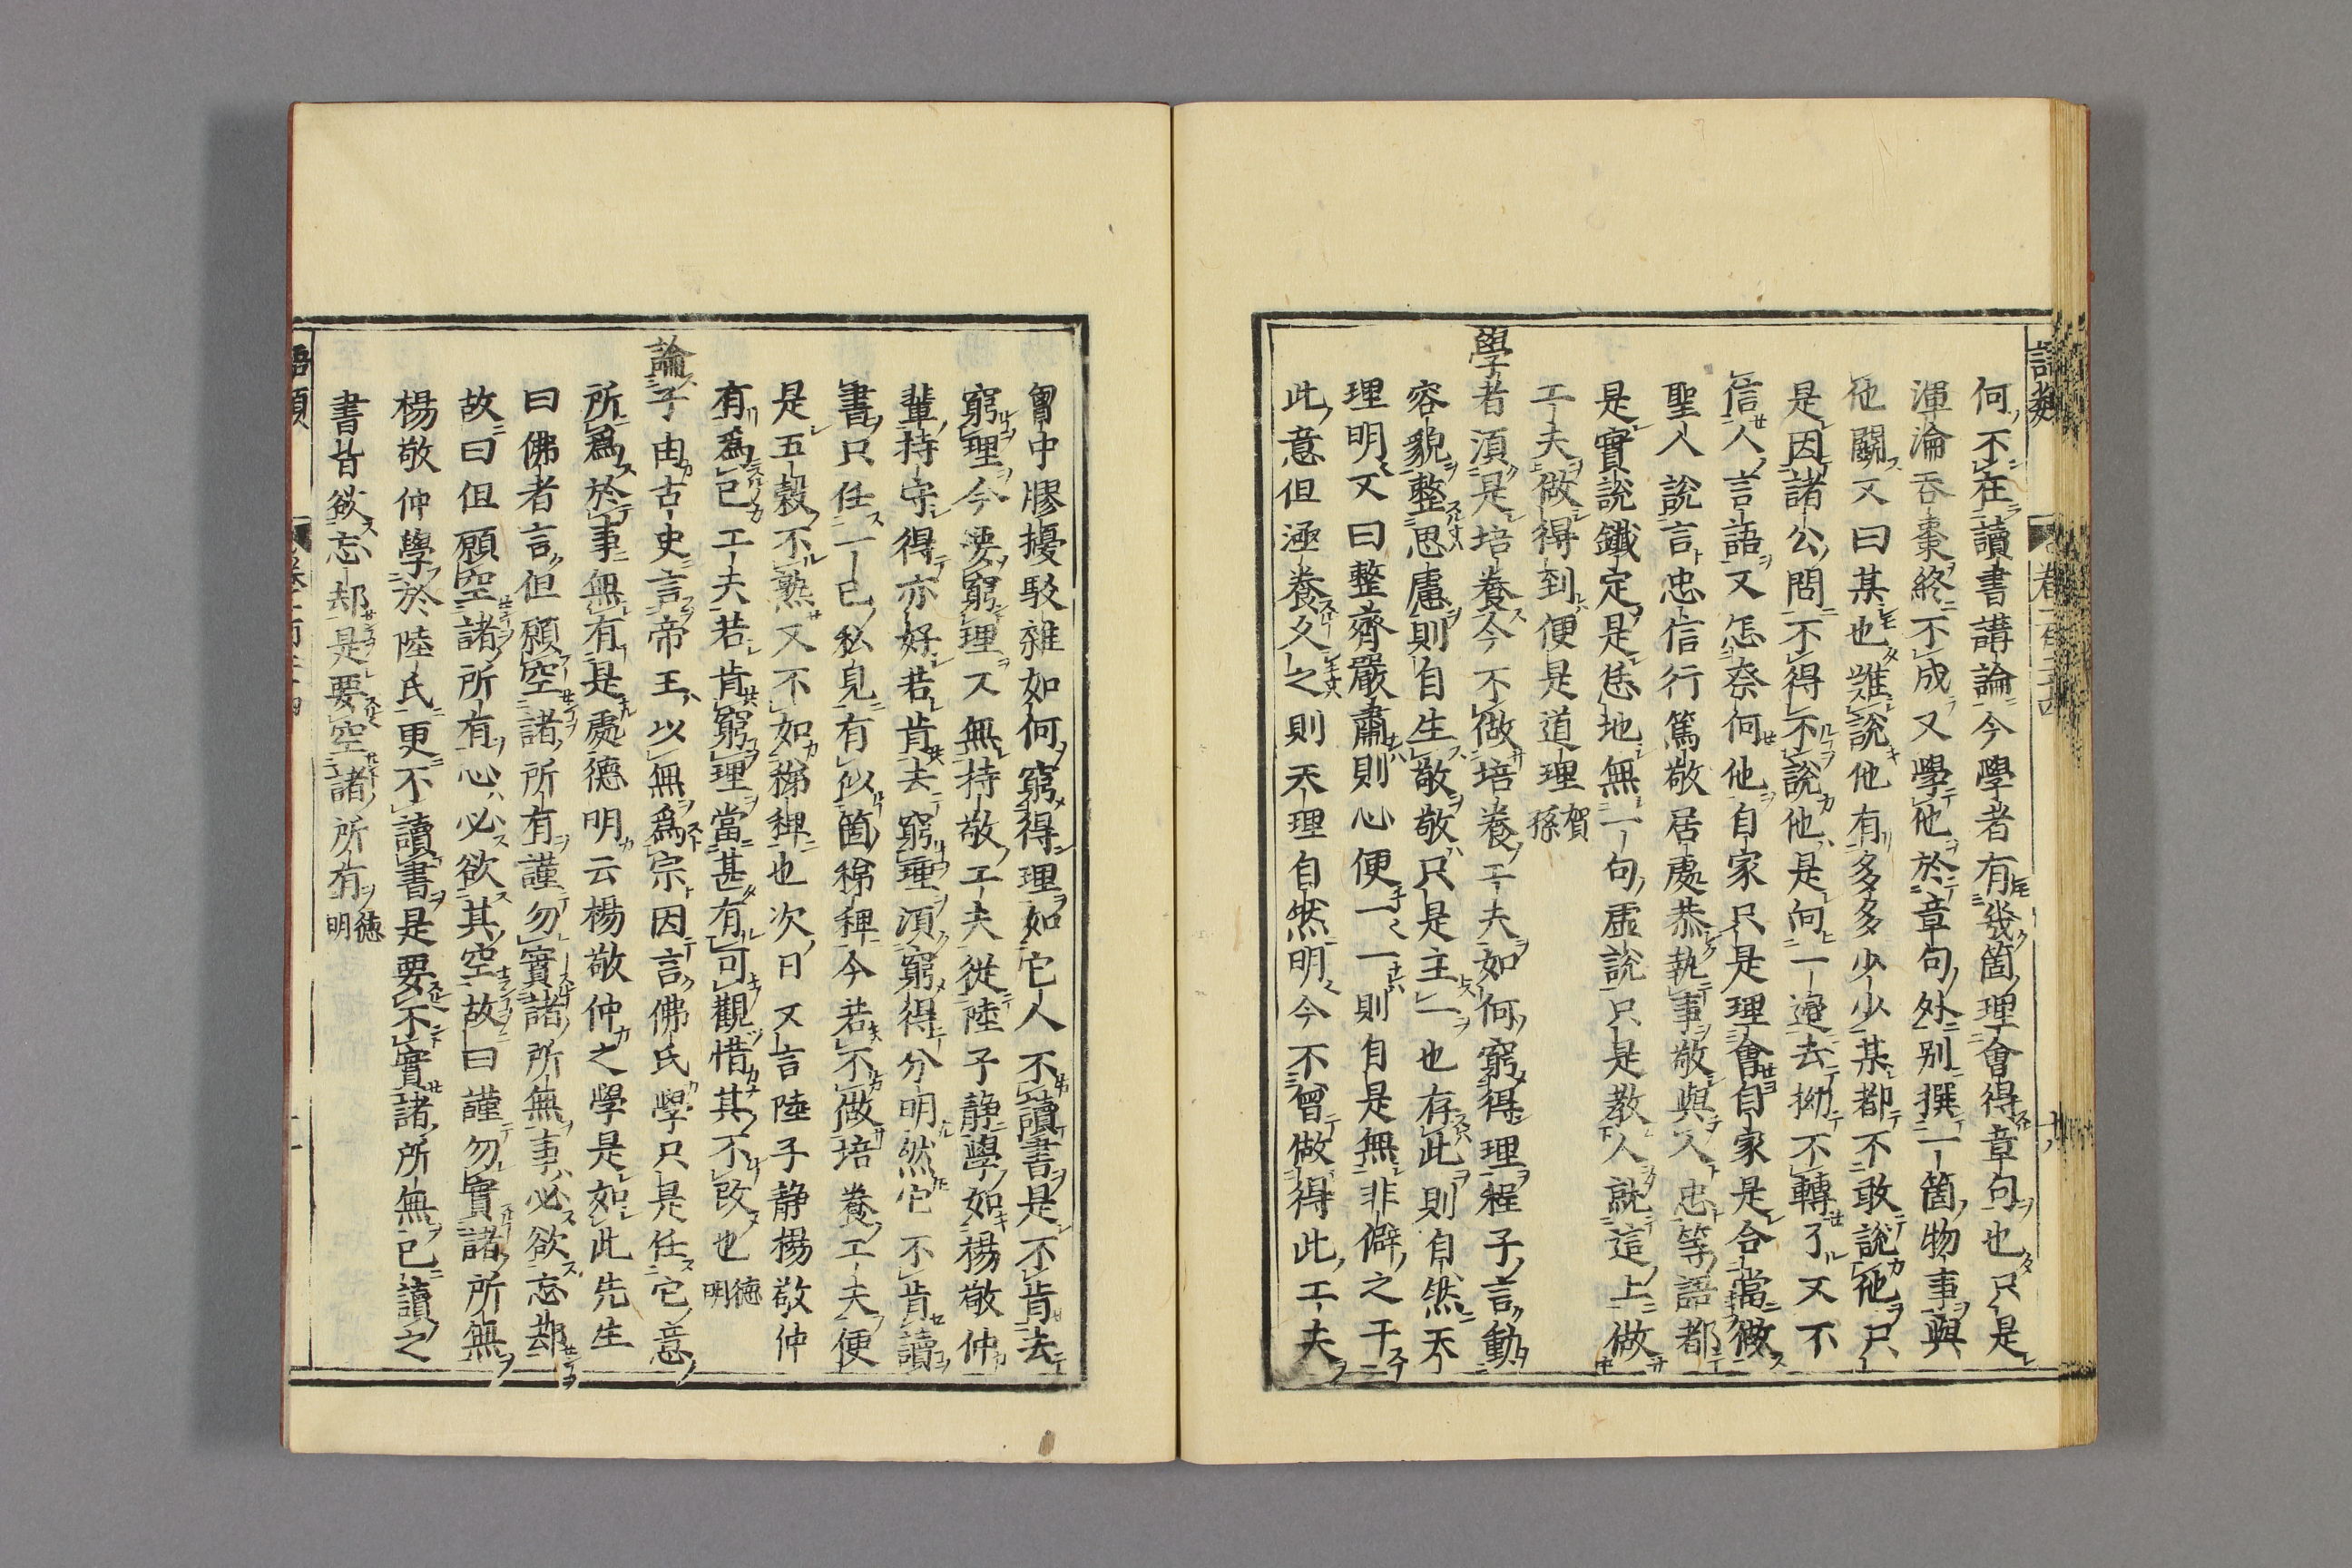 語類
卷一百二十四
十
何不在讀書講論今學者有幾箇理會得章句也只是
渾淪吞棗終不成又學他於章句外別撰一箇物事與
他鬭又曰某也難說他有多多少少某都不敢說他只
是因諸公問不得不說他是向一邊去拗不轉了又不
信人言語又怎奈何他自家只是理會自家是合當做
聖人說言忠信行篤敬居處恭執事敬與人忠等語都
是實說鐵定是恁地無一句虛說只是教人就這上做
工夫做得到便是道理 賀孫
學者須是培養今不做培養工夫如何窮得理程子言動
容貌整思慮則自生敬敬只是主一也存此則自然天
理明又曰整齊嚴肅則心便一一則自是無非僻之干
此意但涵養久之則天理自然明今不曾做得此工夫
胷中膠擾駁雜如何窮得理如它人不讀書是不肯去
窮理今要窮理又無持敬工夫從陸子靜學如楊敬仲
輩持守得亦好若肯去窮理須窮得分明然它不肯讀
書只任一己私見有似箇稊稗今若不做培養工夫便
是五穀不熟又不如稊稗也次日又言陸子靜楊敬仲
有爲己工夫若肯窮理當甚有可觀惜其不改也 德明
論子由古史言帝王以無爲宗因言佛氏學只是任它意
所爲於事無有是處德明云楊敬仲之學是如此先生
曰佛者言但願空諸所有謹勿實諸所無事必欲忘却
故曰但願空諸所有心必欲其空故曰謹勿實諸所無
楊敬仲學於陸氏更不讀書是要不實諸所無已讀之
書皆欲忘却是要空諸所有 德明
語類